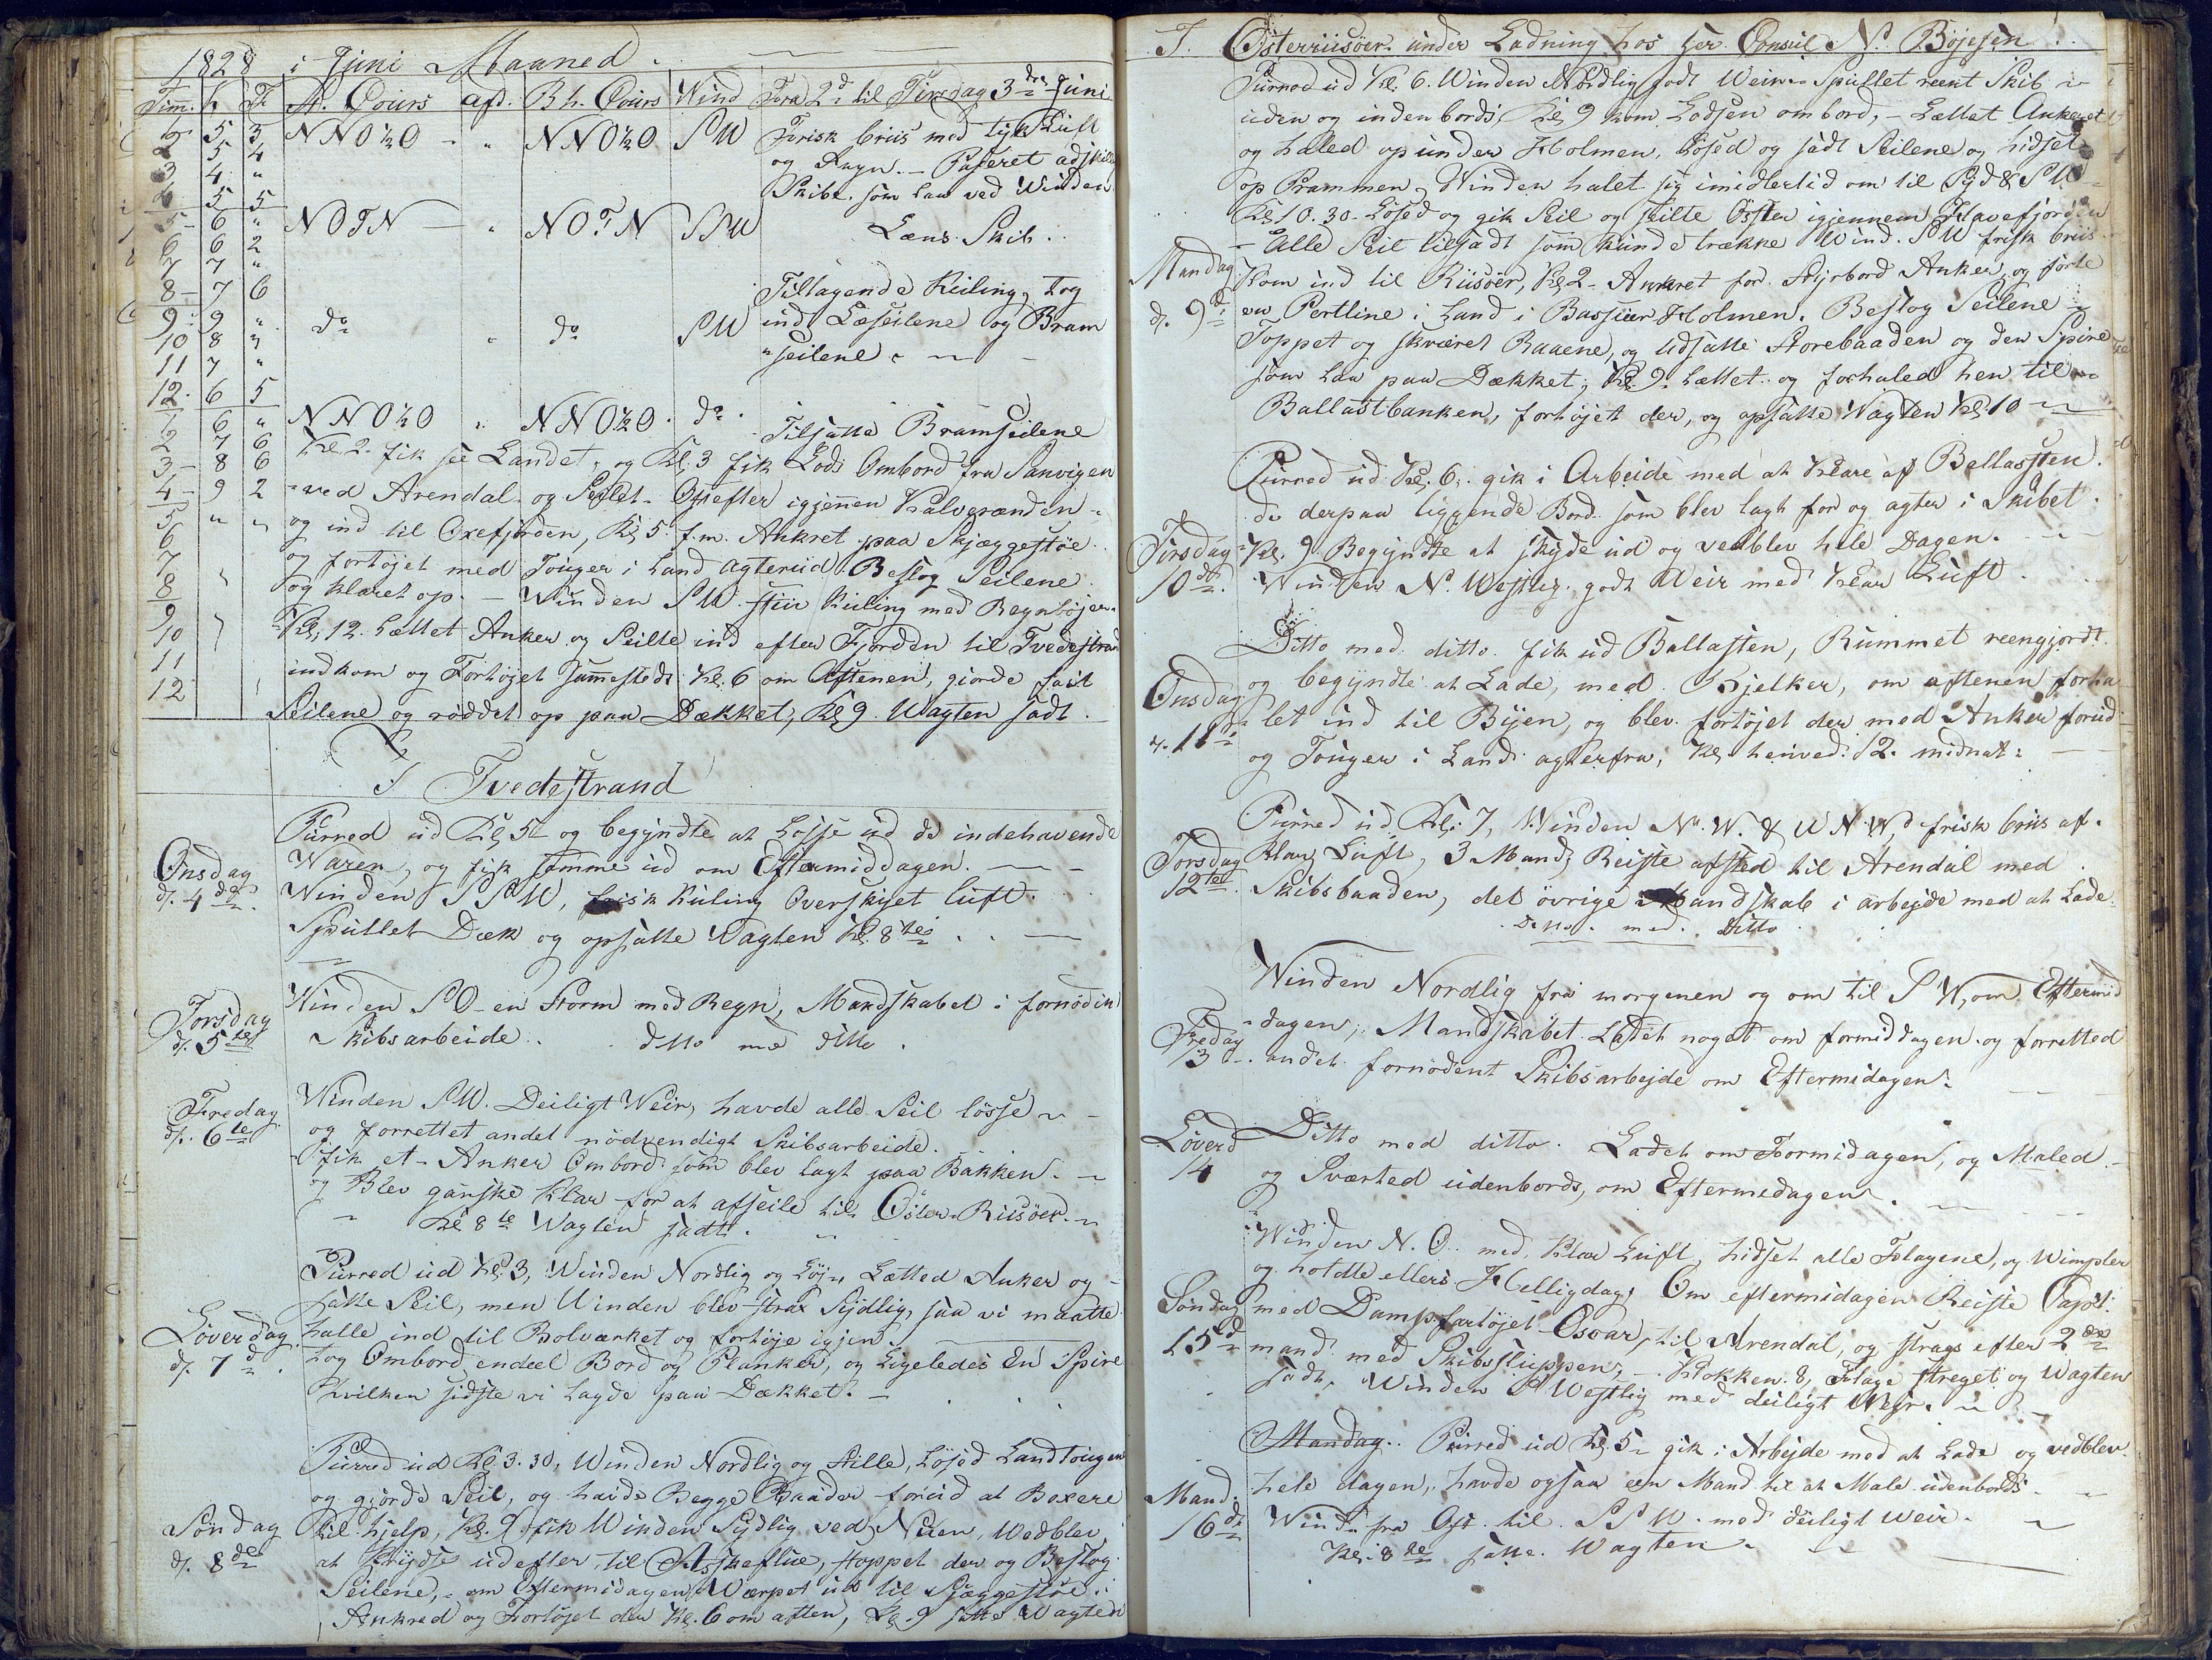 1828 i Juni Maaned.
Tim. K F St. Cours afd. Bh. Cours Wind Fra 2d til Tirsdag 3die Juni
1 5 3 NNO½O " NNO½O SW Frisk briis med tyk Luft
2 5 4 og Regn. - Paseret adskille
3 4 " Skibe som laa ved Winden
4 5 5
5 6 " NOTN " NOTN SSW Læns Skib.
6 6 2
7 7 "
8 7 6 Tiltagende Kuling, tog
9 9 " do " do SW ind Læseilene og Bram
10 8 3 "seilene
11 7 "
12 6 5
1 6 " NNO½O " NNO½O do Tilsatte Bramseilene
2 7 6 Kl. 2 fik see Landet, og Kl. 3 fik Lods Ombord fra Sanvigen
3 8 6
4 9 2 ved Arendal og Seilet Østefter igjennem Kalvesunden
5 " " og ind til Oxefjorden, Kl 5 f.m. Ankret paa Skjæggestøe
6
7 og fortøjet med Touger i Land agterud Beslog Seilene
8 og klaret op. - Winden SW stiv Kuling med Regnbøjer.
9
10 Kl. 12 Lættet Anker og Seilte ind efter Fjorden til Tvedestrand
11 indkom og Fortøjet sammesteds Kl. 6 om Aftenen, giorde fast
12
Seilene og røddet op paa Dækket, Kl 9 Wagten sadt.
I Tvedestrand
Purred ud Kl 5 og begyndte at Losse ud de indehavende
Onsdag Waren, og fik samme ud om Eftermiddagen.
d. 4de Winden SSW, frisk Kuling Overskyet luft.
Spullet Dæk og opsatte Wagten Kl. 8te
Winden SO en Storm med Regn, Mandskabet i fornøden
Torsdag
d. 5te Skibsarbeide. ditto med ditto.
Winden SW. Deiligt Weir, havde alle Seil lösse
Fredag
d. 6te og forrettet andet nödvendigt Skibsarbeide.
fik et Anker Ombord som blev lagt paa Bakken.
og Blev ganske Klar for at afseile til Öster-Riisöer.
Kl 8te Wagten sadt.
Purred ud Kl 3, Winden Nordlig og Løj, Lætted Anker og
satte Seil, men Winden blev strax Sydlig, saa vi maatte
Löverdag halle ind til Bolværket og fortöje igjen
d. 7d tog Ombord endeel Bord og Planker, og Ligeledes En Spire
hvilken sidste vi lagde paa Dækket.
Purred ud Kl 3.30, Winden Nordlig og Stille, Løsed Landtougene
og gjorde Seil, og havde Begge Baader forud at Boxere
Söndag til hjelp, Kl. 9 fik Winden Sydlig ved, Wedblev
d. 8de at Krydse udefter til Askeflue, stoppet der og Beslog
Seilene, om Eftermidagen Warpet ud til Sjæggestøe
Ankred og Fortøjet der Kl. 6 om aften, Kl. 9 satte Wagten
I Österriisöer under Ladning hos Her Consul N. Böjesen
Purred ud Kl. 6. Winden Nordlig godt Weir. Spullet reent Skib
uden og indenbords, Kl 9 kom Lodsen ombord, - Lættet Ankeret
og haled op under Holmen, Løsed og sadt Seilene og hidset
op Prammen, Winden halet sig imidlertid om til Syd & SW
Kl 10.30. Løsed og gik Seil og seilte Öster igjennem Havefjorden
- Alle Seil tilsadt som kunde trække Wind. SW frisk briis
Mandag Kom ind til Riisöer, Kl 2 Ankret for Styrbord Anker, og førte
d. 9d en Pertline i Land i Bassuer Holmen. Beslog Seilene
Toppet og skværet Raaene, og Udsatte Storebaaden og den Spire
som laa paa Dækket, Kl. 9. Lættet og forhaled hen til
Ballastbanken, fortöjet der, og opsatte Wagten Kl 10
Purred ud Kl. 6, gik i Arbeide med at Klare af Ballassten
de derpaa liggende Bord som blev lagt for og agter i Skibet.
Tirsdag Kl. 9 Begyndte at skyde ud og vedblev hele Dagen.
10de Winden N. Westlig godt Weir med Klar Luft.
Ditto med ditto. fik ud Ballasten, Rummet reengjordt
Onsdag og begyndte at Lade, med Bjelker, om aftenen forha
d. 11te let ind til Byen, og blev fortöjet der med Anker forud
og Touger i Land agterfra, Kl henved 12 midnat.
Purred ud Kl. 7, Winden N.W. & WNW frisk briis af
Torsdag Klar Luft, 3 Mand Reiste afsted til Arendal med
12te Skibsbaaden, det övrige Mandskab i arbejde med at Lade
Ditto med Ditto
Winden Nordlig fra morgenen og om til SW, om Eftermid
Fredag dagen, Mandskabet Ladet noget om formiddagen og forretted
13 andet fornödent Skibsarbejde om Eftermidagen.
Löverd Ditto med ditto. Ladet om Formidagen, og Maled
14 og Sværted udenbords, om Eftermedagen.
Winden N.O. med Klar Luft, hidset alle Flagene, og Wimpler
og holdte ellers Helligdag, Om eftermidagen Reiste Capit:
Söndag med Dampfartöjet Oscar, til Arendal, og strags efter 2de
15d mand med Skibsslüppen, - Klokken 8, Flage streget og Wagten
sadt. Winden SWestlig med deiligt Wejr.
Mandag. Purred ud Kl. 5 gik i Arbejde med at Lade og vedblev
Mand. hele dagen, havde ogsaa een Mand til at Male udenbords
16d Wind fra Ost til SSW. med deiligt weir.
Kl. 8te satte Wagten.